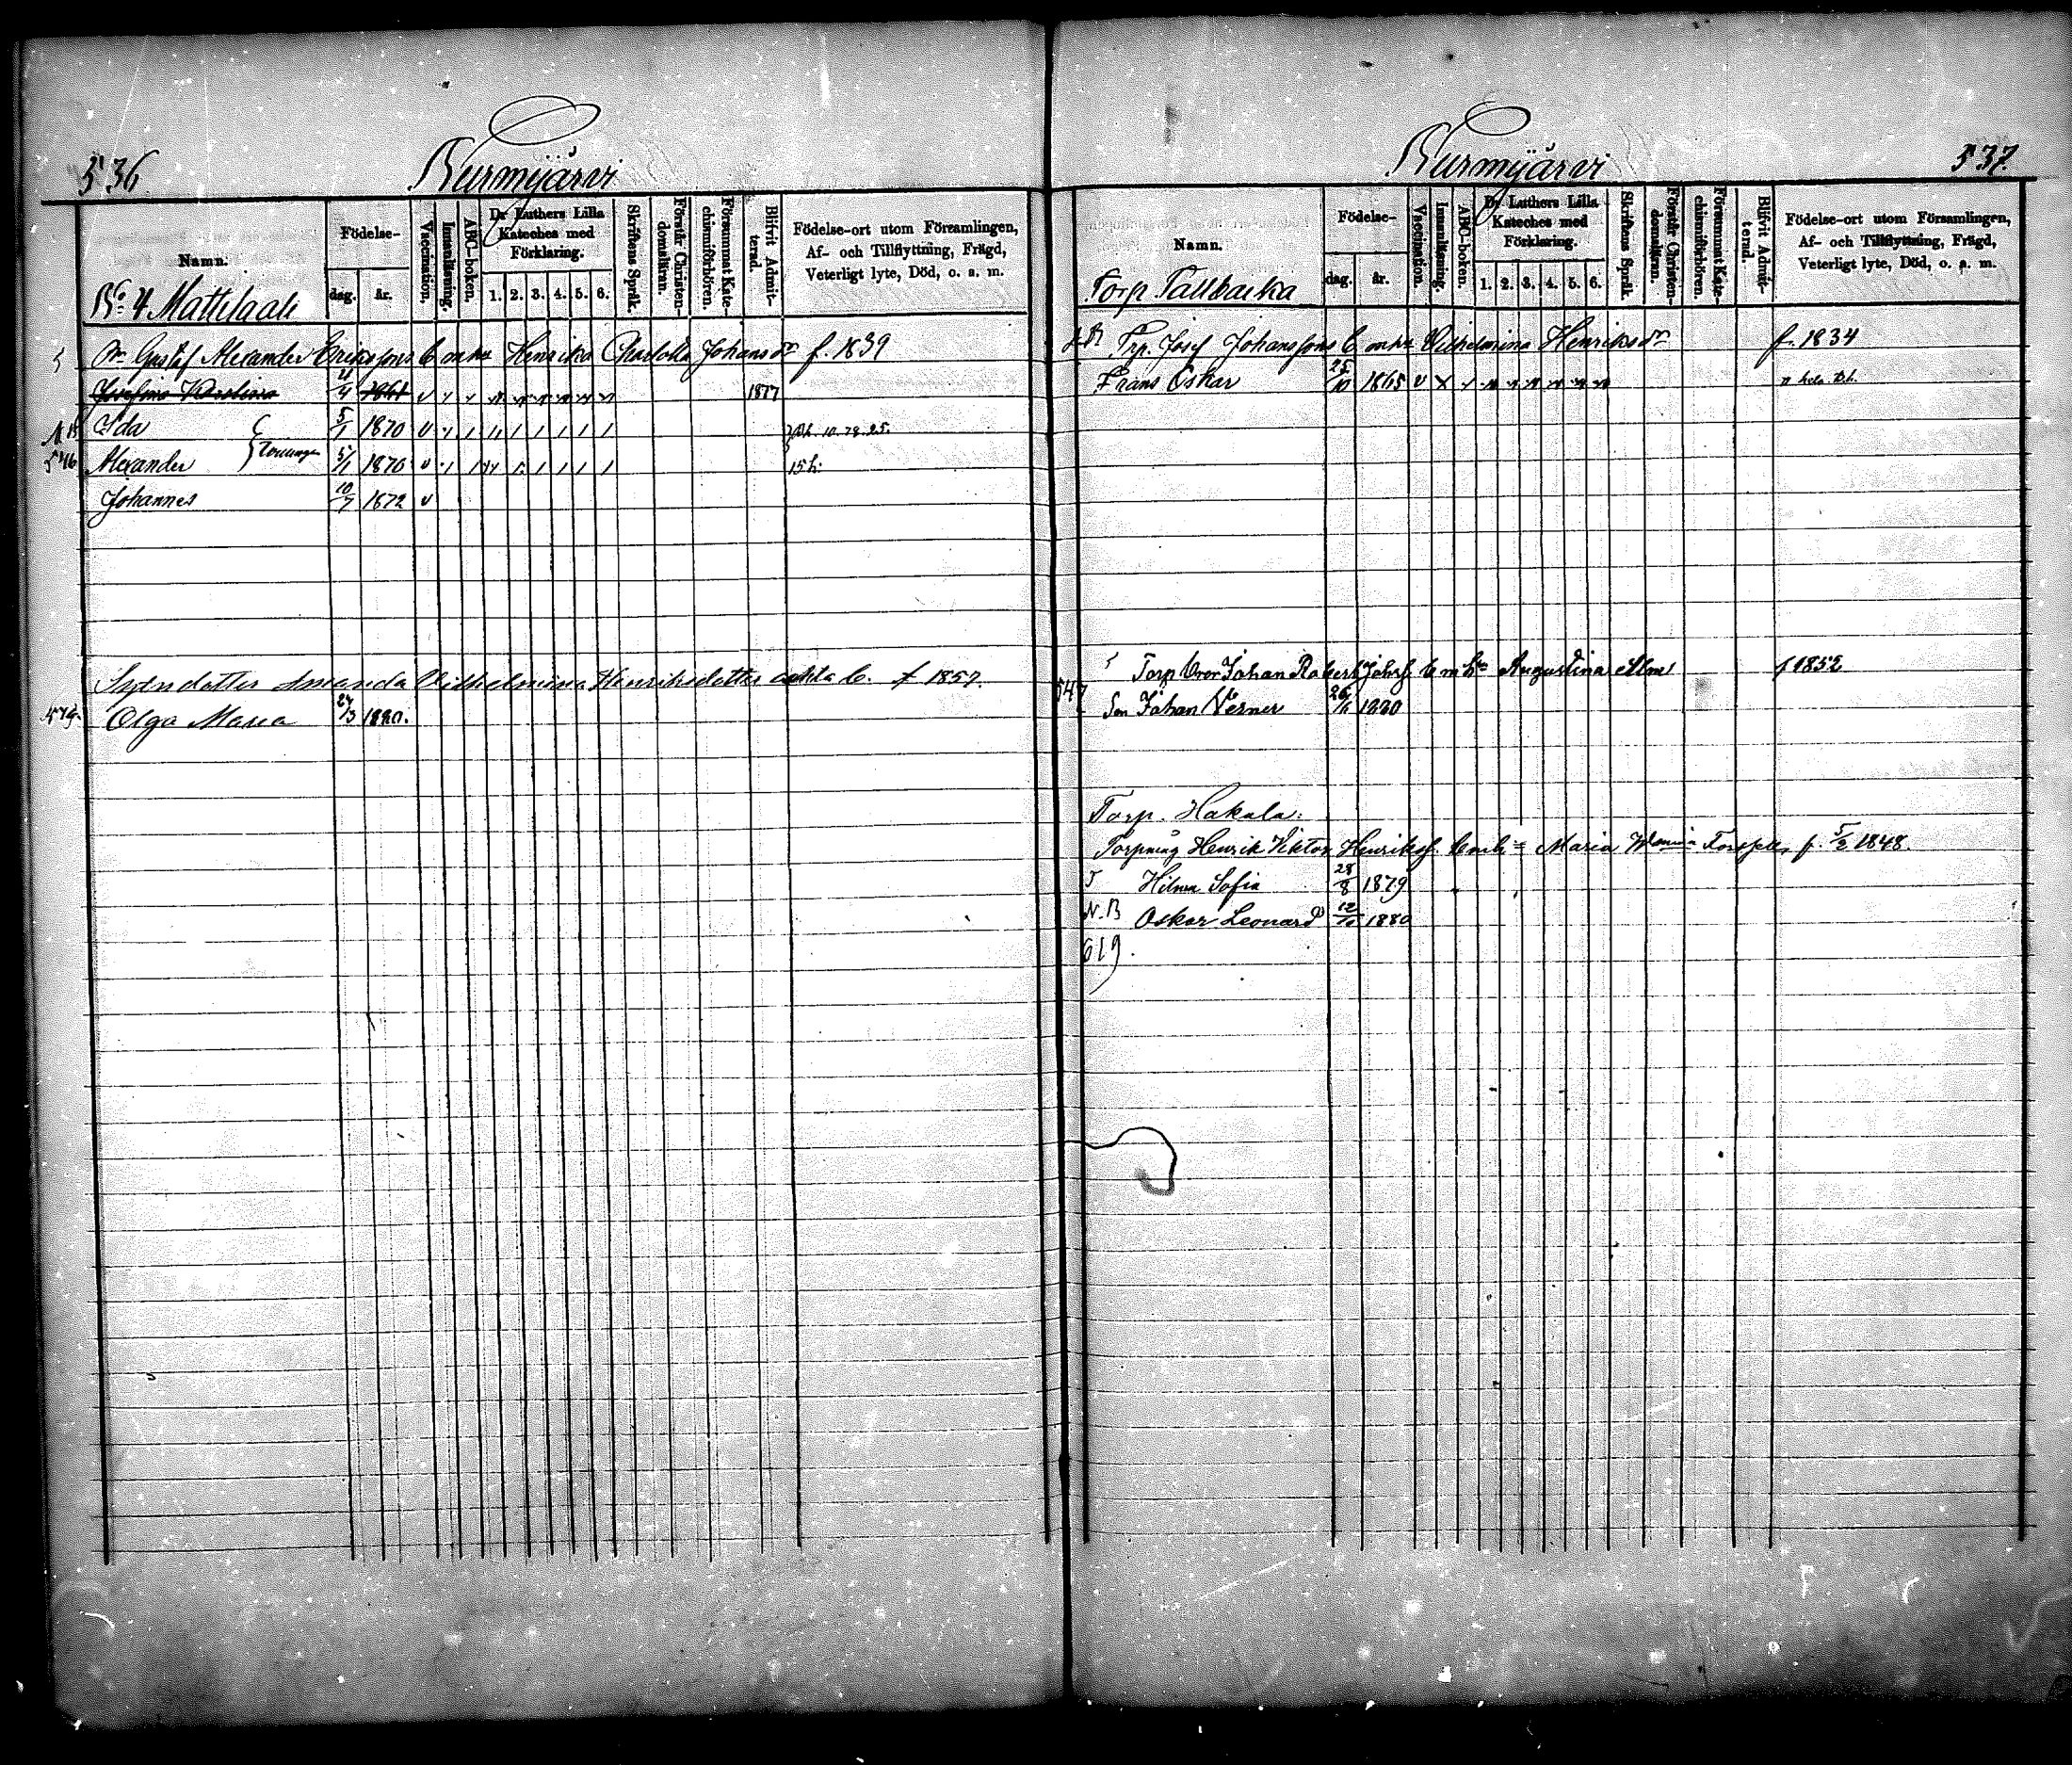 536
Nurmijärvi
Namn.
Födelse-
dag.
år.
Vaccination.
Innanläsning.
ABC-boken.
Dr Luthers Lilla
Kateches med
Förklaring.
1. 2. 3. 4. 5. 6.
Skriftens Språk.
Förstår Christen-
domsläran.
Försummat Kate-
chismiförhören.
Blifvit Admit-
terad.
Födelse-ort utom Församlingen,
Af- och Tillflyttning, Frägd,
Veterligt lyte, Död, o. s. m.
No 4 Mattelaali
Gustaf Alexander Erikssons E m hu Henrika Charlotta Johansdr f. 1839
Josefina Karolina 4/9 1861 1877
Ida 5/1 1870
546 Alexander 5/1 1870 15 h.
Johannes 10/7 1872
dotter Amanda Vilhelmina Henriksdotter f 1857.
579. Olga Maria 24/3 1880.
537.
Nurmijärvi
Namn.
Födelse-
dag.
år.
Vaccination.
Innanläsning.
ABC-boken.
Dr Luthers Lilla
Kateches med
Förklaring.
1. 2. 3. 4. 5. 6.
Skriftens Språk.
Förstår Christen-
domsläran.
Försummat Kate-
chismiförhören.
Blifvit Admit-
terad.
Födelse-ort utom Församlingen,
Af- och Tillflyttning, Frägd,
Veterligt lyte, Död, o. s. m.
Torp Tallbacka
Trp. Josef Johanssons E m hu Vilhelmina Henriksdr f. 1834
Frans Oskar 25/10 1865
Torp Johan Robert Johs. E m hu Augustina Alm f 1852
547 Son Johan Verner 26/6 1880
Torp. Hakala.
Torpmåg Henrik Viktor Henrikss. E m h Maria Wmina f. 5/2 1848.
Hilma Sofia 28/8 1879
N.B Oskar Leonard 12/10 1880
619.